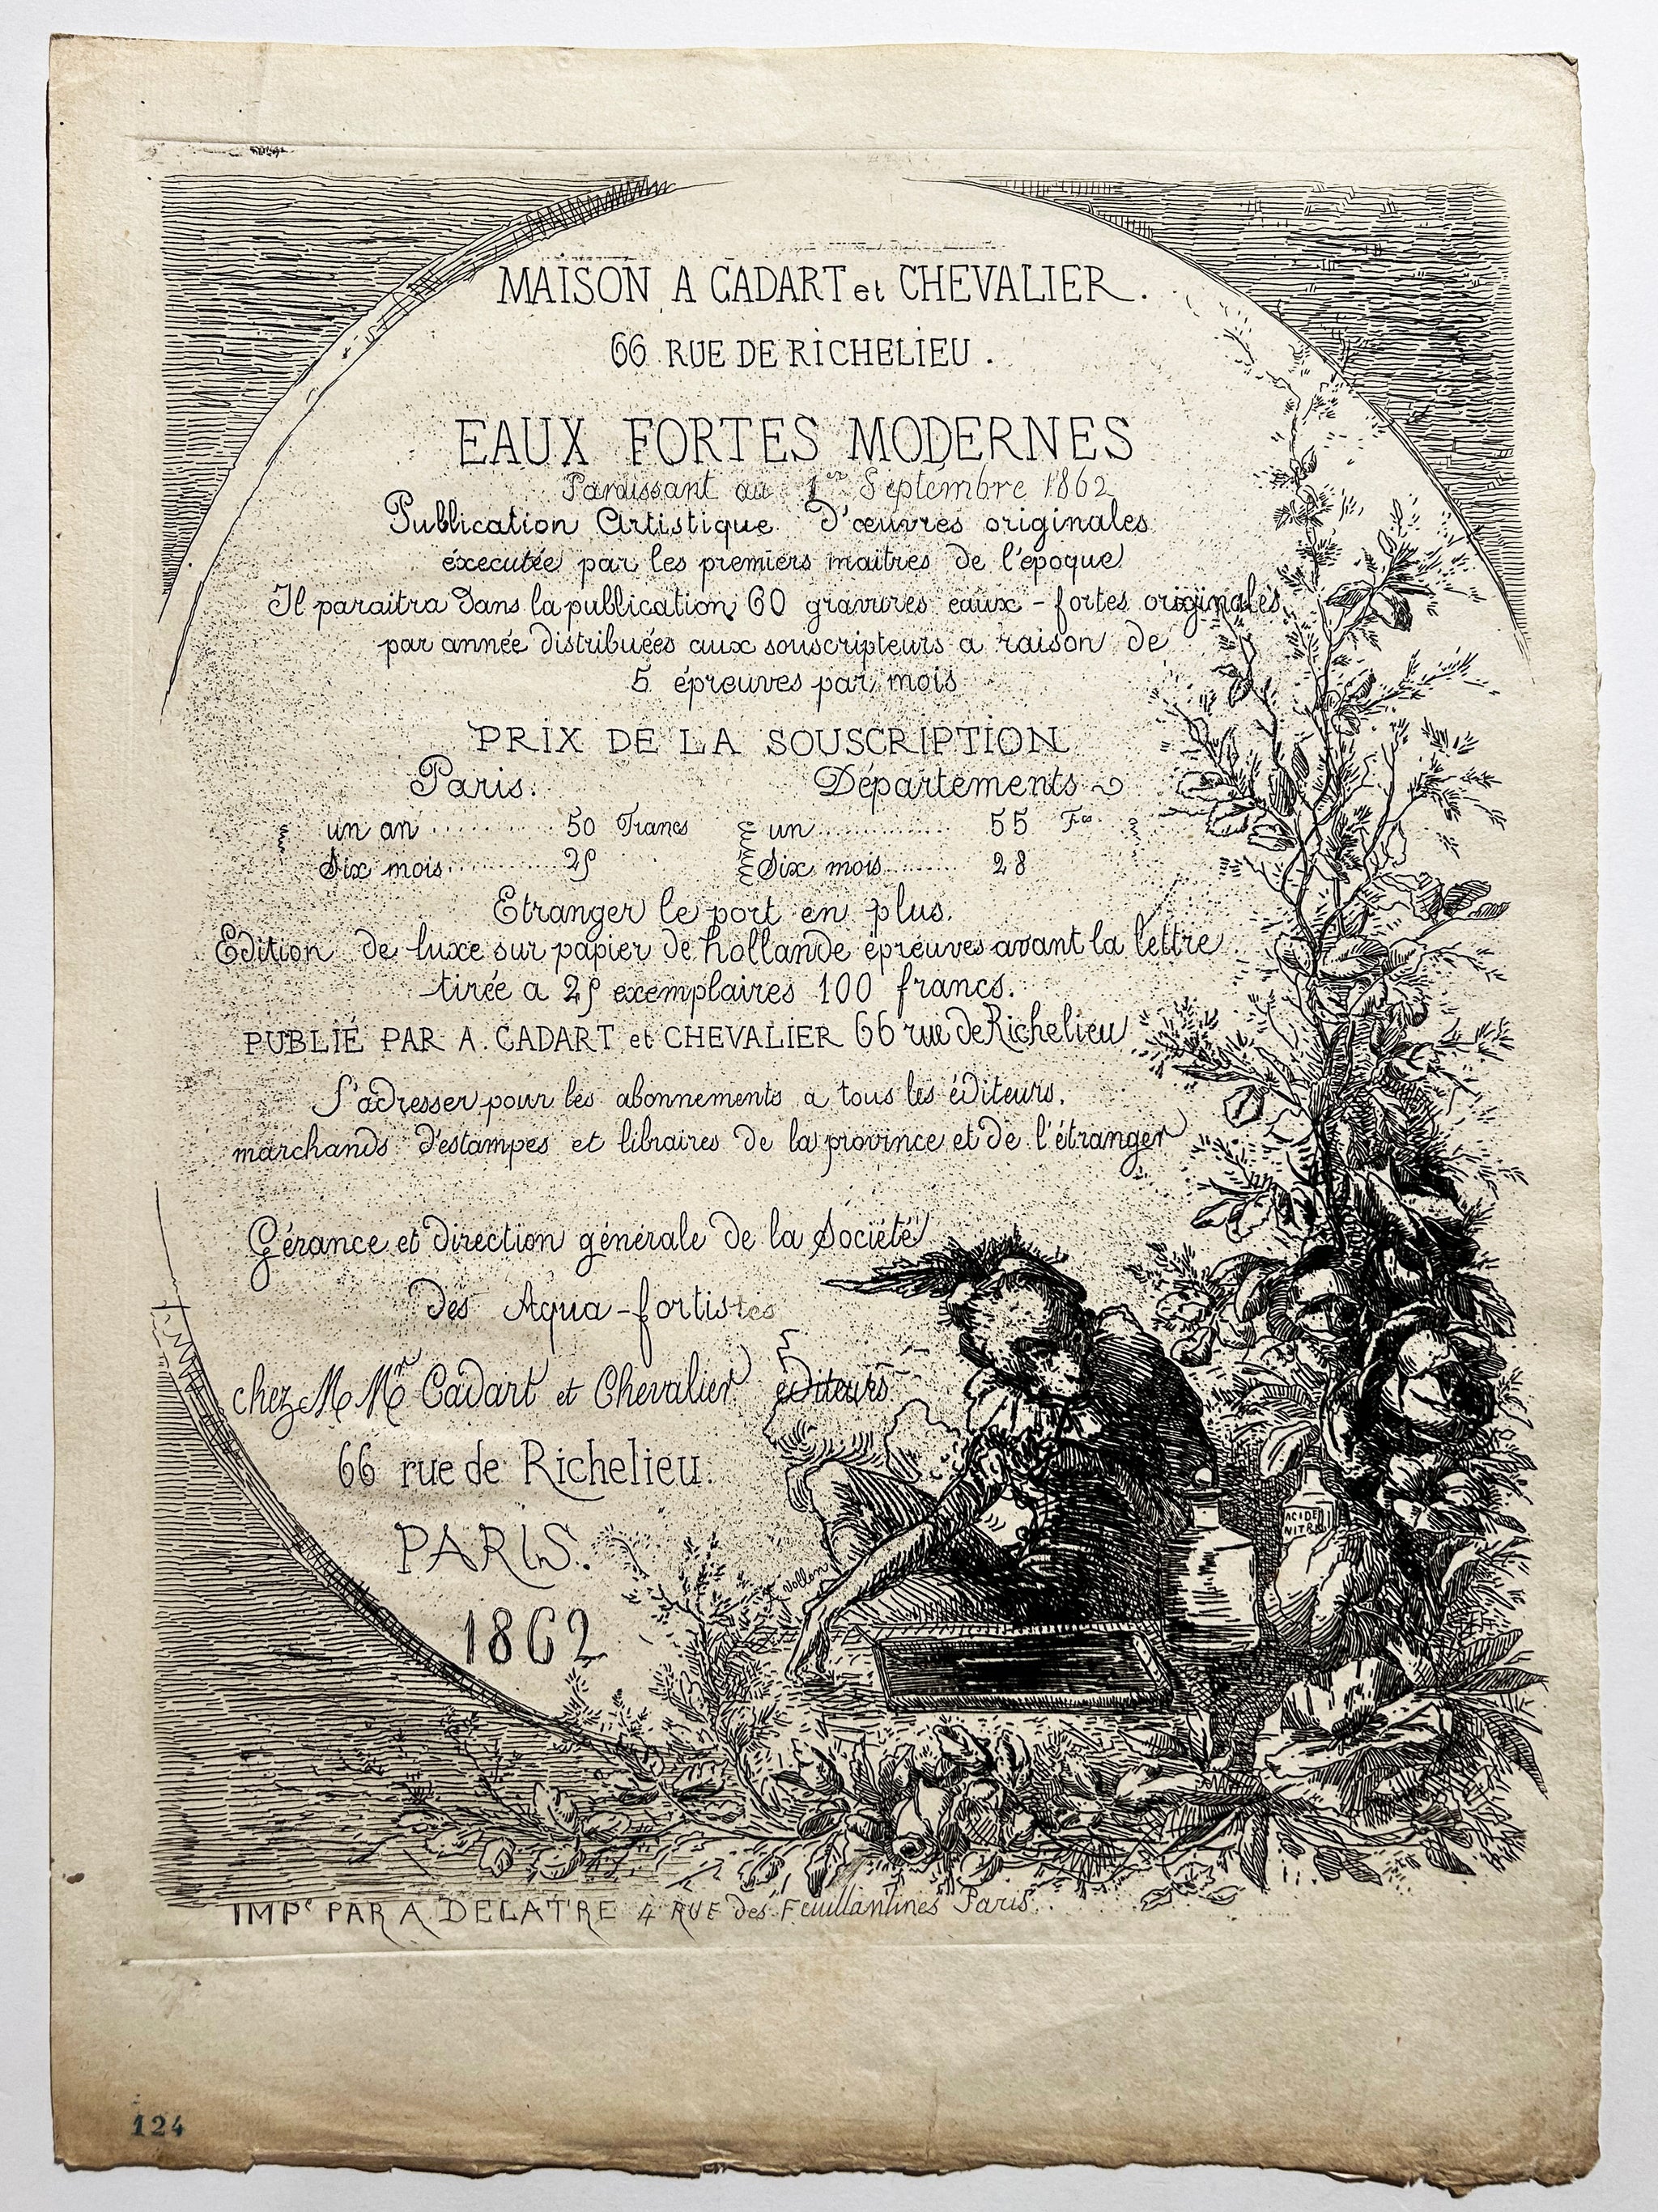 MAISON A CADART et CHEVALIER.
66 RUE DE RICHELIEU.
EAUX FORTES MODERNES
Paraissant au 1er Septembre 1862
Publication Artistique D'œuvres originales
éxecutée par les premiers maitres de l'époque
Il paraitra Dans la publication 60 gravures eaux-fortes originales
par année distribuées aux souscripteurs a raison de
5 épreuves par mois
PRIX DE LA SOUSCRIPTION
Paris: Départements
un an ........ 50 Francs un ........ 55 Fcs
Six mois ........ 25 Six mois ........ 28
Etranger le port en plus.
Edition de luxe sur papier de hollande épreuves avant la lettre
tirée a 25 exemplaires 100 francs.
PUBLIÉ PAR A. CADART et CHEVALIER 66 rue de Richelieu
S'adresser pour les abonnements a tous les éditeurs,
marchands d'estampes et libraires de la province et de l'étranger
Gérance et direction générale de la Société
des Aqua-fortistes
chez M Mrs Cadart et Chevalier éditeurs
66 rue de Richelieu.
PARIS.
1862
ACIDE
NITR
Vollon
IMPé PAR A DELATRE 4 RUE des Feuillantines Paris.
124